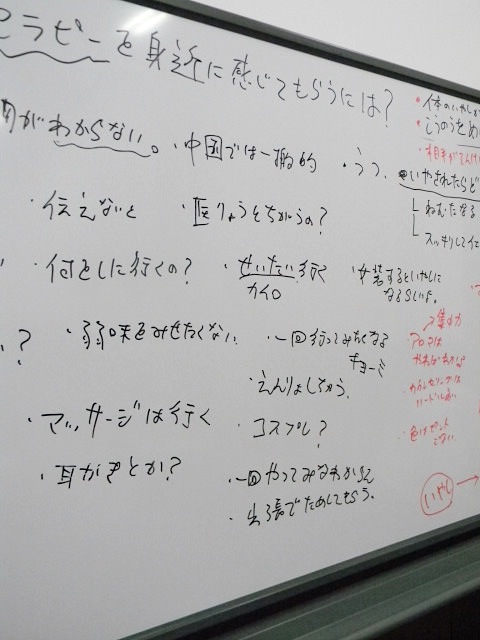 セラピーを身近に感じてもらうには?
がわからない。
・中国では一般的
・うつ、
・いやされたらど
・伝えないと
・医りょうとちがうの?
ねむたくなる
スッキリして
・何をしに行くの?
・せいたい行く
カイロ
・女装するといやしに
なるらしいよ。
?
・弱味をみせたくない
・一回行ってみたくなる
キョーミ
・えんりょしちゃう。
・マッサージは行く
・コスプレ?
・耳かきとか?
・一回やってみなわからん
・出張でためしてもらう。
・体のいやし
・こうのうをめ
・集中力
・アロマは
・カウンセリングは
ハードル高い
・色はピンと
こない
いやし→